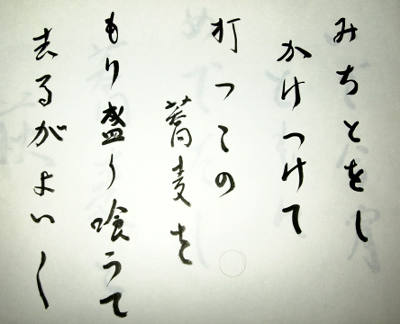 みちとをし
かけつけて
打つこの
蕎麦を
もり盛り喰うて
去るがよい〱